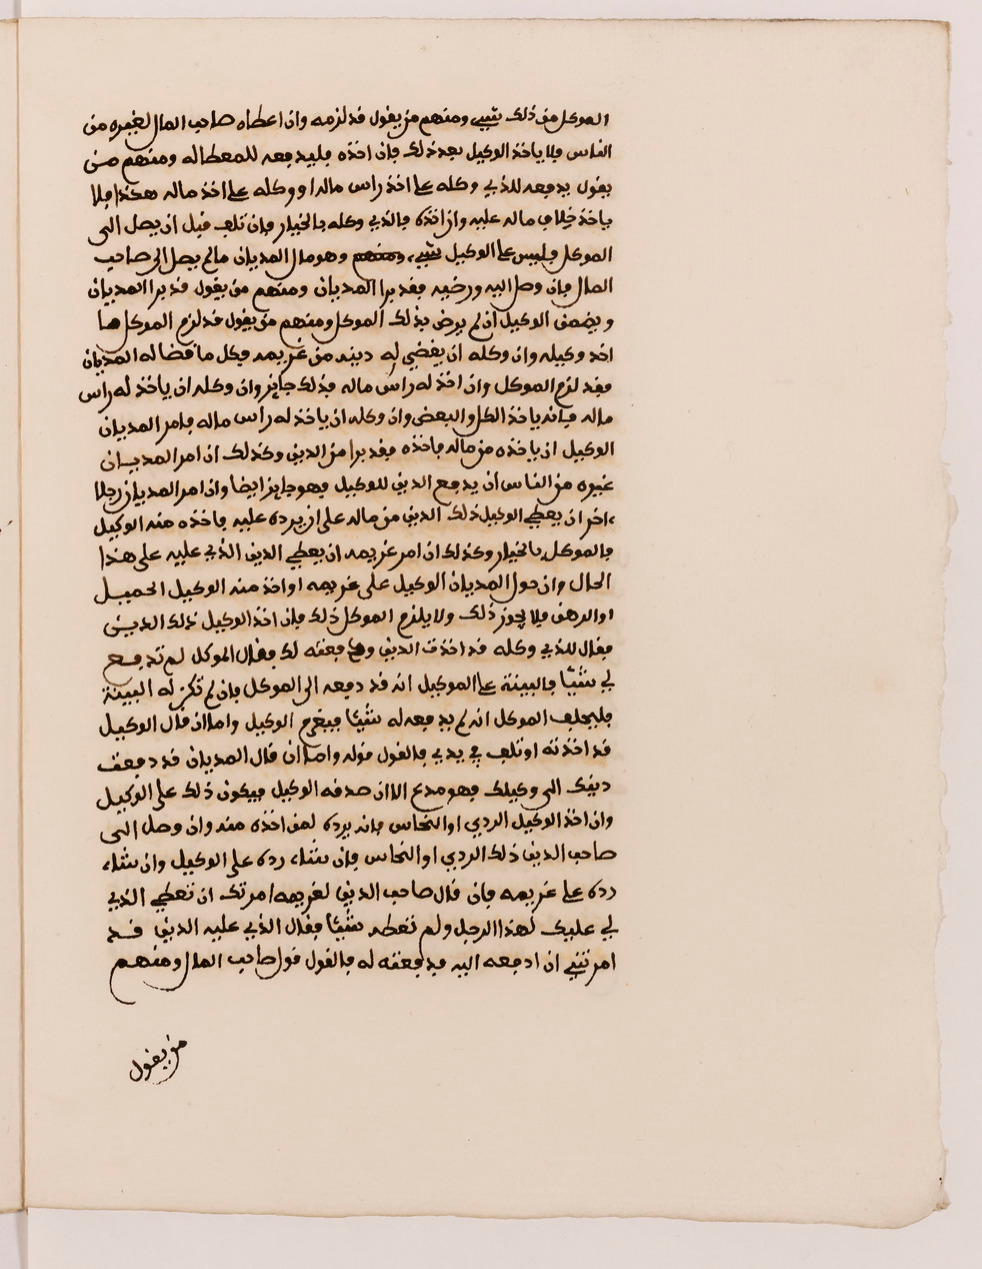 الموكل من ذلك شيء ومنهم من يقول قد لزمه وان اعطاه صاحب المال لغيره من
الناس فلا ياخذ الوكيل بعد ذلك فان اخذه فليدفعه للمعطا له ومنهم من
يقول يدفعه للذي وكله على اخذ راس ماله او وكله على اخذ ماله هكذا فلا
ياخذ خلاف ماله عليه وان اخذه فالذي وكله بالخيار فان تلف قبل ان يصل الى
الموكل فليس على الوكيل شيء ومنهم وهو مال المديان ما لم يصل الى صاحب
المال فان وصل اليه ورضيه فقد برا المديان ومنهم من يقول قد برا المديان
ويضمن الوكيل ان لم يرض بذلك الموكل ومنهم من يقول قد لزم الموكل ما
اخذ وكيله وان وكله ان يقضي له دينه من غريمه فكل ما قضا له المديان
فقد لزم الموكل وان اخذ له راس ماله فذلك جايز وان وكله ان ياخذ له راس
ماله فانه ياخذ الكل والبعض وان وكله ان ياخذ له راس ماله فامر المديان
الوكيل ان ياخذه من ماله فاخذه فقد برا من الدين وكذلك ان امر المديان
غيره من الناس ان يدفع الدين للوكيل فهو جايز ايضا وان امر المديان رجلا
ءاخر ان يعطي الوكيل ذلك الدين من ماله على ان يرده عليه فاخذه منه الوكيل
فالموكل بالخيار وكذلك ان امر غريمه ان يعطي الدين الذي عليه على هذا
الحال وان حول المديان الوكيل على غريمه او اخذ منه الوكيل الحميل
او الرهن فلا يجوز ذلك ولا يلزم الموكل ذلك فان اخذ الوكيل ذلك الدين
فقال للذي وكله قد اخذت الدين ودفعته لك فقال الموكل لم تدفع
لي شيئا فالبينة على الموكيل انه قد دفعه الى الموكل فان لم تكن له البينة
فليحلف الموكل انه لم يدفعه له شيئا فيغرم الوكيل واما ان قال الوكيل
قد اخذته او تلف في يدي فالقول قوله واما ان قال المديان قد دفعت
دينك الى وكيلك فهو مدع الا ان صدقه الوكيل فيكون ذلك على الوكيل
وان اخذ الوكيل الردي او النحاس فانه يرده لمن اخذه منه وان وصل الى
صاحب الدين ذلك الردي او النحاس فان شاء رده على الوكيل وان شاء
رده على غريمه فان قال صاحب الدين لغريمه امرتك ان تعطي الذي
لي عليك لهذا الرجل ولم تعطه شيئا فقال الذي عليه الدين قد
امرتني ان ادفعه اليه فدفعته له فالقول قول صاحب المال ومنهم
من يقول